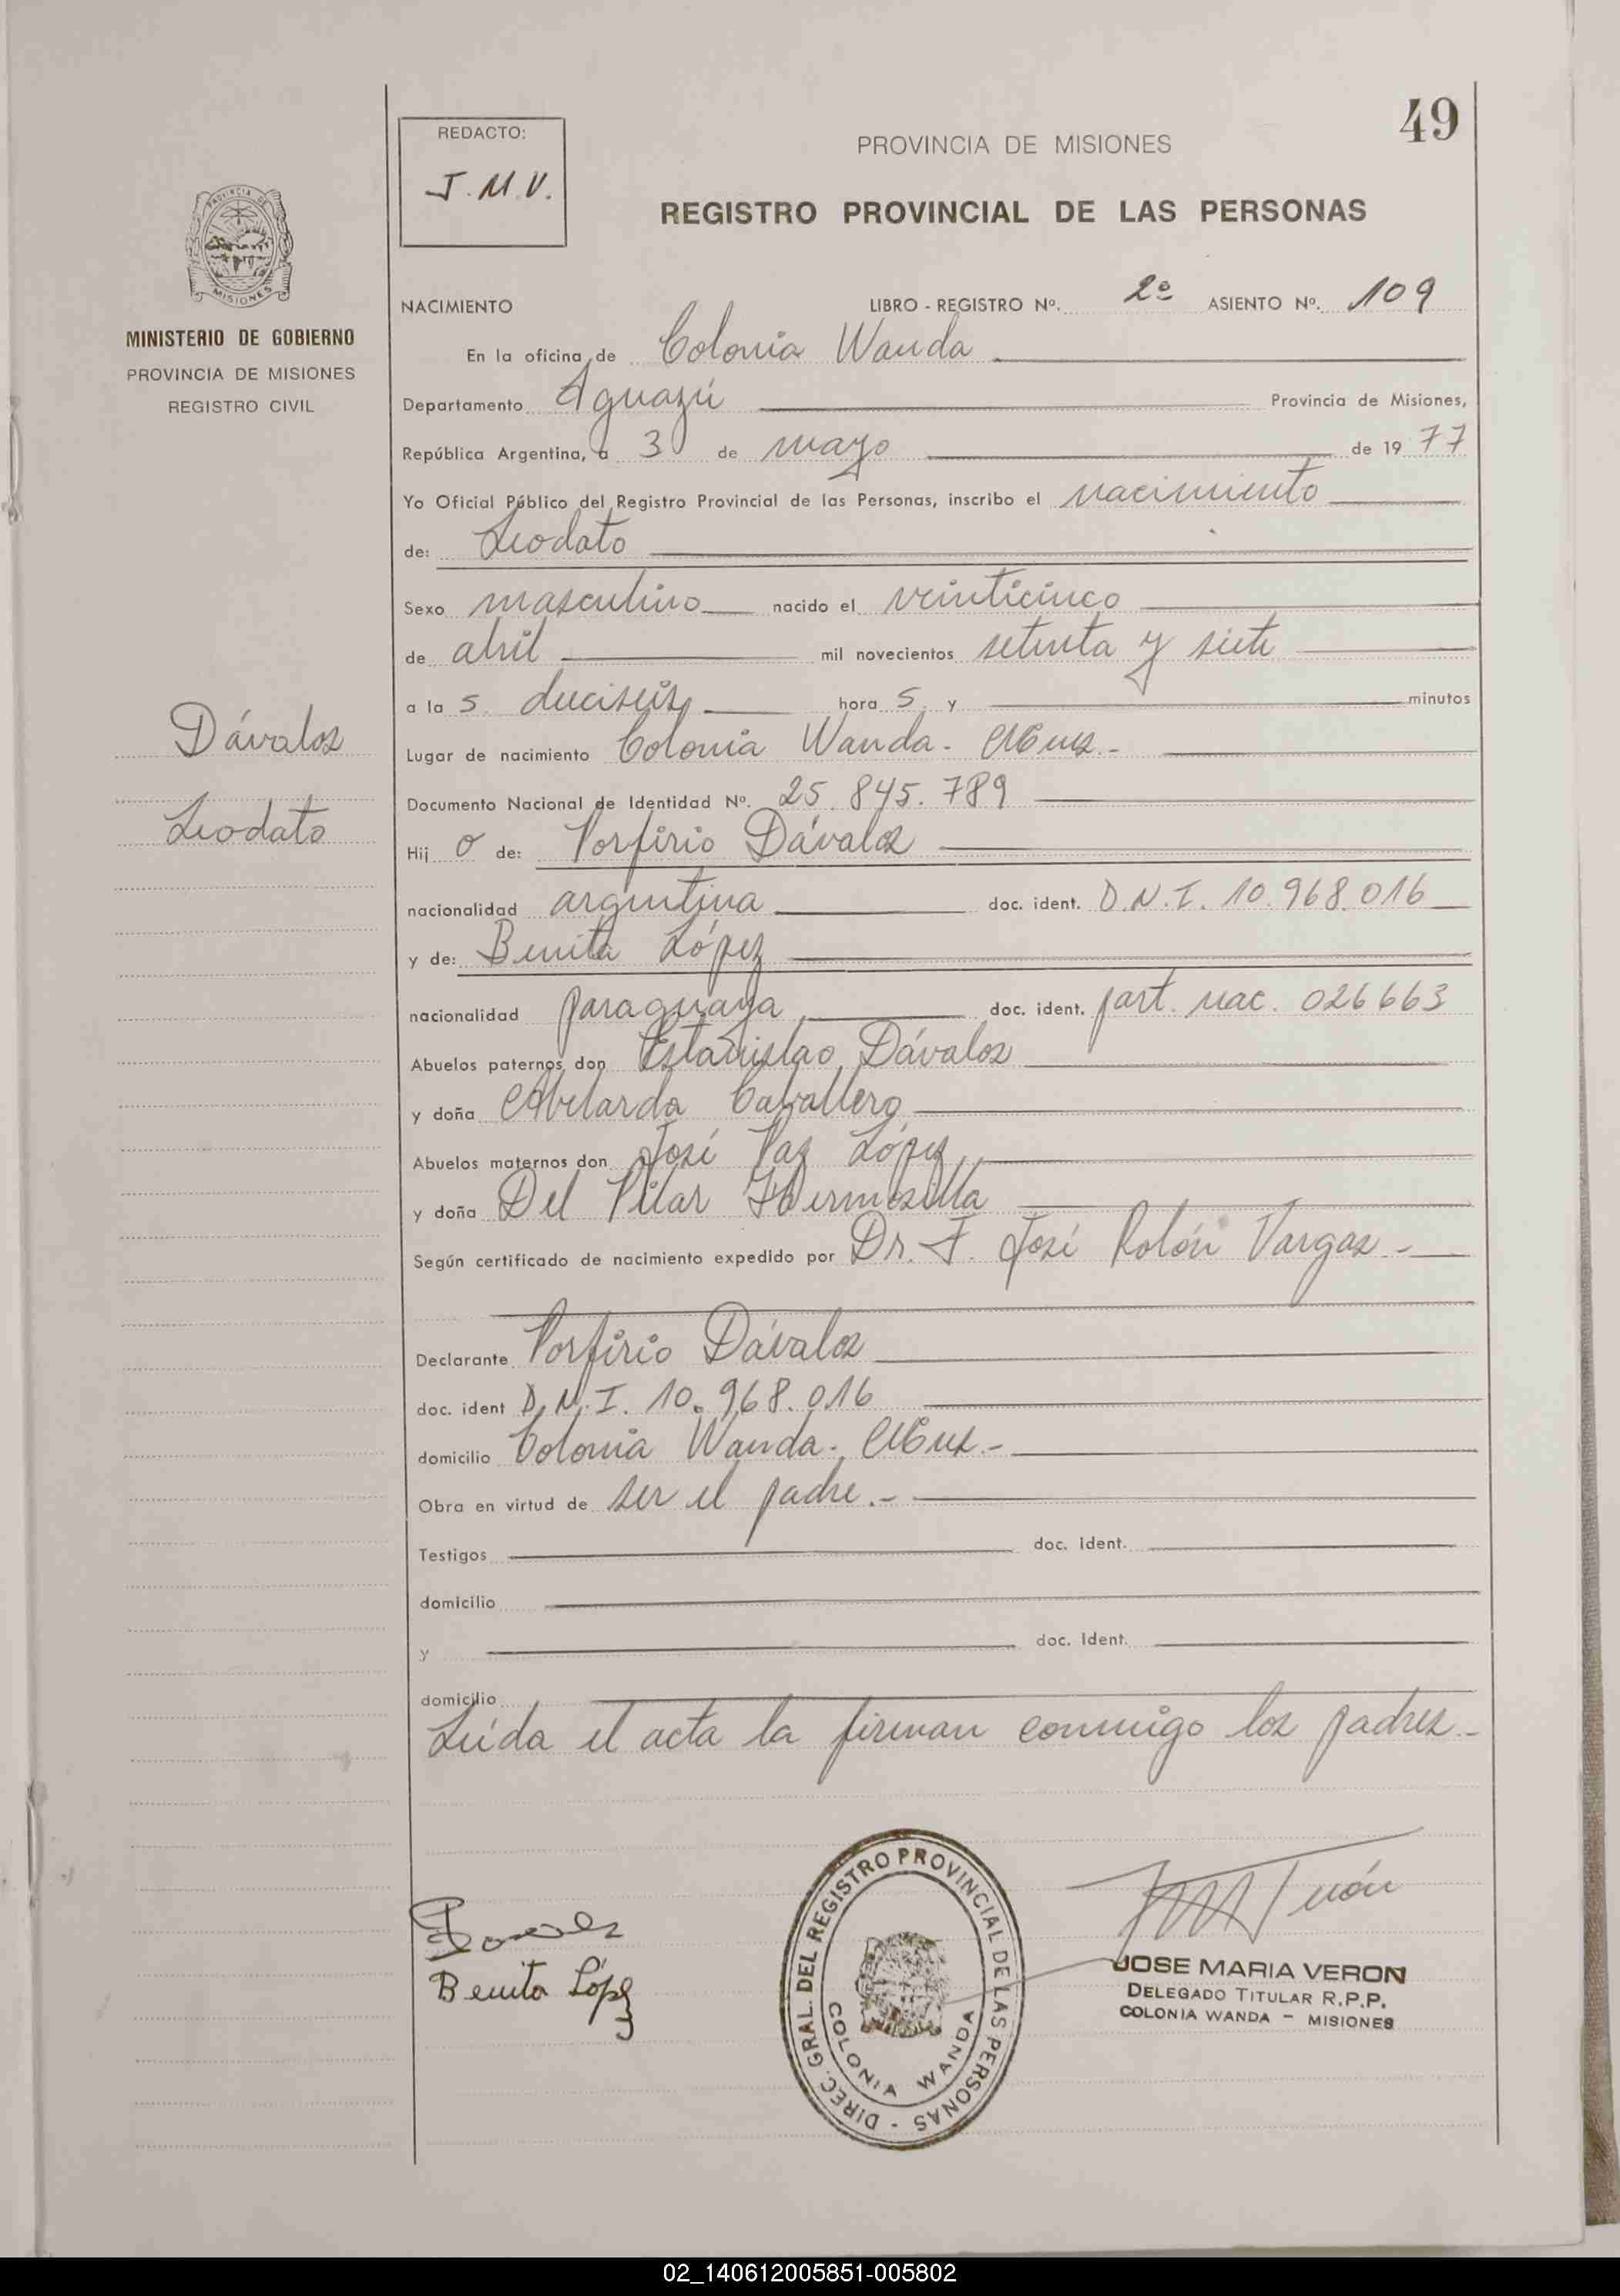 49
REDACTO:
J.M.V.
PROVINCIA DE MISIONES
REGISTRO PROVINCIAL DE LAS PERSONAS
PROVINCIA DE
MISIONES
MINISTERIO DE GOBIERNO
PROVINCIA DE MISIONES
REGISTRO CIVIL
Dávalos
Leodato
NACIMIENTO LIBRO - REGISTRO Nº. 2º ASIENTO Nº. 109
En la oficina de Colonia Wanda
Departamento Iguazú Provincia de Misiones,
República Argentina, a 3 de mayo de 1977
Yo Oficial Público del Registro Provincial de las Personas, inscribo el nacimiento
de: Leodato
Sexo masculino nacido el veinticinco
de abril mil novecientos setenta y siete
a la s. dieciseis hora s y minutos
Lugar de nacimiento Colonia Wanda - Mnes -
Documento Nacional de Identidad Nº. 25.845.789
Hij o de: Porfirio Dávalos
nacionalidad argentina doc. ident. D.N.I. 10.968.016
y de: Benita López
nacionalidad paraguaya doc. ident. part. nac. 026663
Abuelos paternos don Estanislao Dávalos
y doña Abelarda Caballero
Abuelos maternos don José Paz López
y doña Del Pilar Hermosilla
Según certificado de nacimiento expedido por Dr. F. José Rolón Vargas -
Declarante Porfirio Dávalos
doc. ident D.N.I. 10.968.016
domicilio Colonia Wanda - Mnes.-
Obra en virtud de ser el padre.-
Testigos doc. Ident.
domicilio
y doc. Ident.
domicilio
Leída el acta la firman conmigo los padres.-
Benita López
DIREC. GRAL. DEL REGISTRO PROVINCIAL DE LAS PERSONAS -
COLONIA WANDA
JOSE MARIA VERON
DELEGADO TITULAR R.P.P.
COLONIA WANDA - MISIONES
02_140612005851-005802